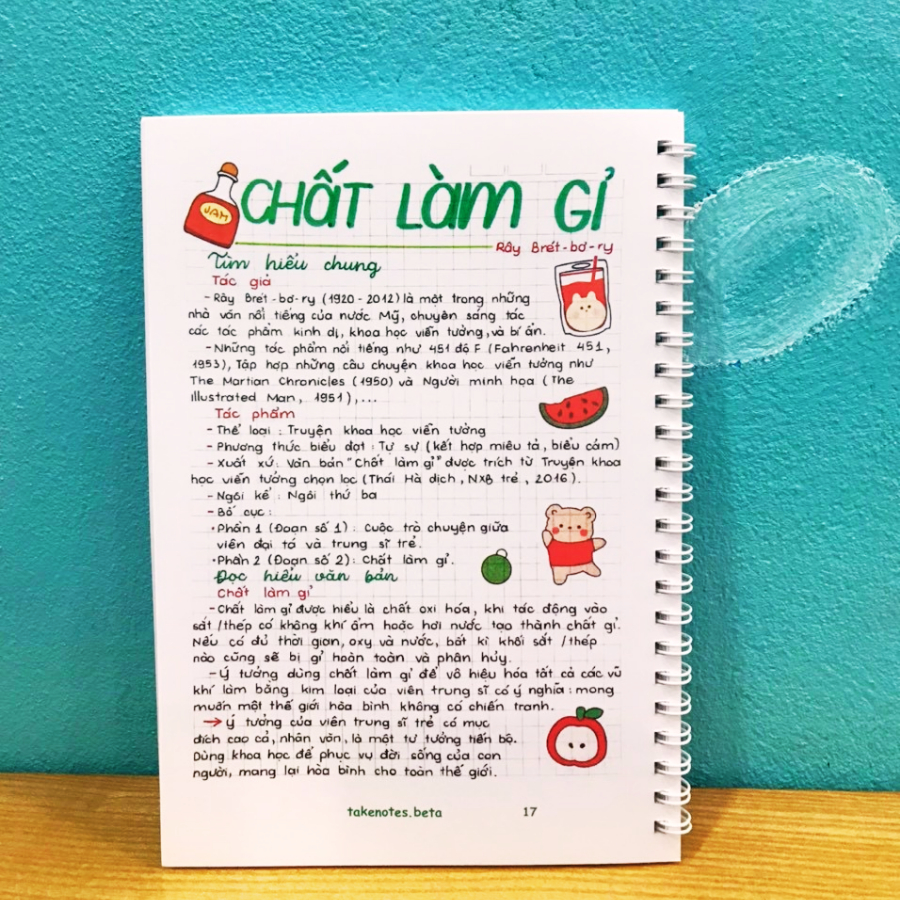 JAM
CHẤT LÀM GỈ
Rây Brét-bơ-ry
Tìm hiểu chung
Tác giả
- Rây Brét-bơ-ry (1920 - 2012) là một trong những
nhà văn nổi tiếng của nước Mỹ, chuyên sáng tác
các tác phẩm kinh dị, khoa học viễn tưởng, và bí ẩn.
- Những tác phẩm nổi tiếng như 451 độ F (Fahrenheit 451,
1953), Tập hợp những câu chuyện khoa học viễn tưởng như
The Martian Chronicles (1950) và Người minh họa (The
Illustrated Man, 1951),...
Tác phẩm
- Thể loại : Truyện khoa học viễn tưởng
- Phương thức biểu đạt : Tự sự (kết hợp miêu tả, biểu cảm)
- Xuất xứ : Văn bản "Chất làm gỉ" được trích từ Truyện khoa
học viễn tưởng chọn lọc (Thái Hà dịch, NXB trẻ, 2016).
- Ngôi kể : Ngôi thứ ba
- Bố cục :
• Phần 1 (Đoạn số 1) : Cuộc trò chuyện giữa
viên đại tá và trung sĩ trẻ.
• Phần 2 (Đoạn số 2) : Chất làm gỉ.
Đọc hiểu văn bản
Chất làm gỉ
- Chất làm gỉ được hiểu là chất oxi hóa, khi tác động vào
sắt/thép có không khí ẩm hoặc hơi nước tạo thành chất gỉ.
Nếu có đủ thời gian, oxy và nước, bất kì khối sắt/thép
nào cũng sẽ bị gỉ hoàn toàn và phân hủy.
- Ý tưởng dùng chất làm gỉ để vô hiệu hóa tất cả các vũ
khí làm bằng kim loại của viên trung sĩ có ý nghĩa : mong
muốn một thế giới hòa bình không có chiến tranh.
→ Ý tưởng của viên trung sĩ trẻ có mục
đích cao cả, nhân văn, là một tư tưởng tiến bộ.
Dùng khoa học để phục vụ đời sống của con
người, mang lại hòa bình cho toàn thế giới.
takenotes.beta 17